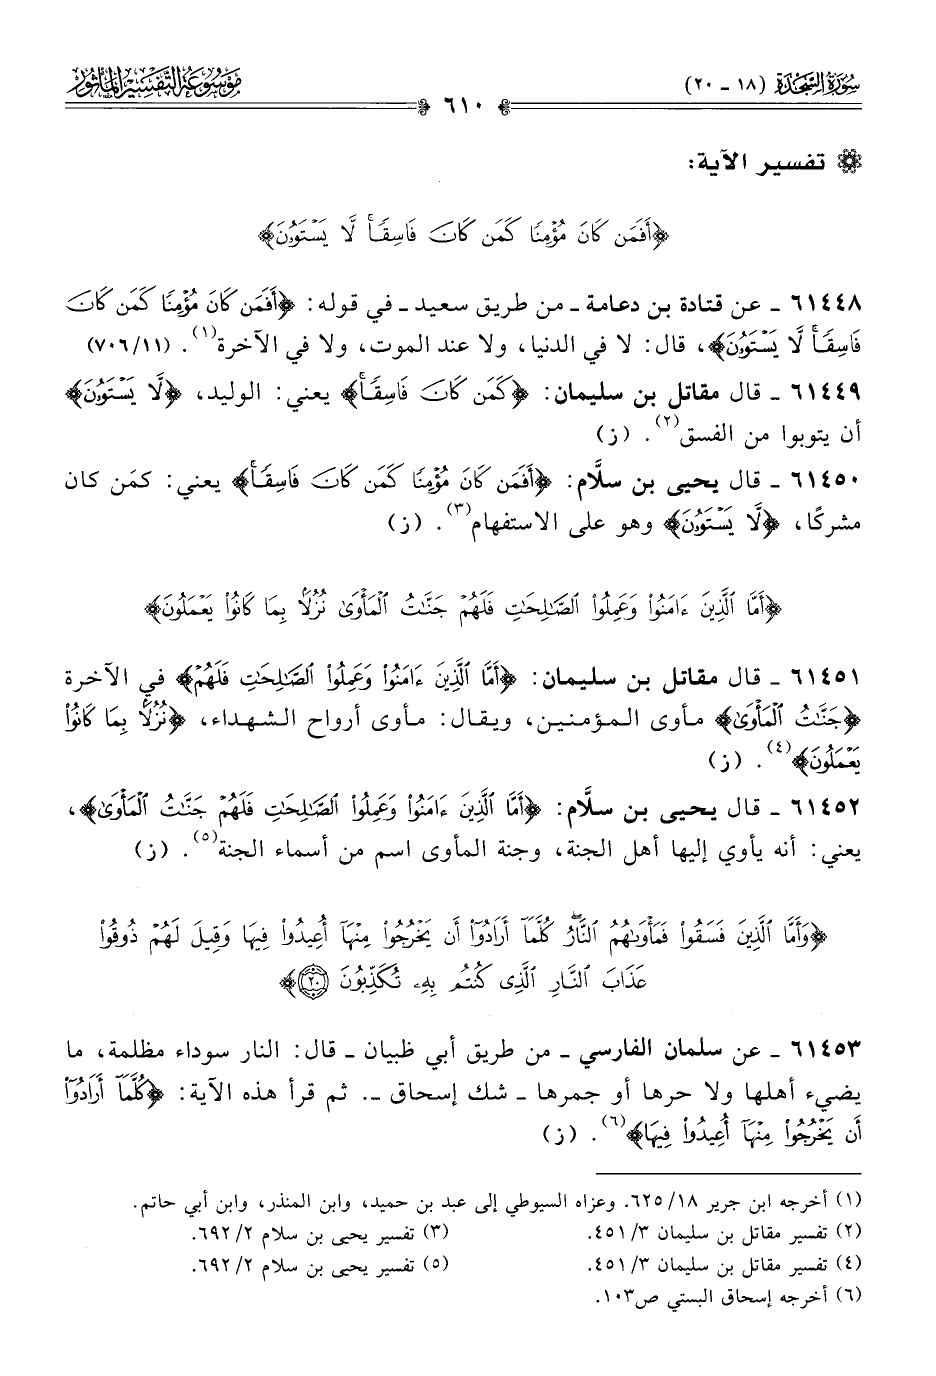 سُورَةُ السَّجْدَةِ (١٨ - ٢٠)
٦١٠
مَوْسُوعَةُ التَّفْسِيرِ المَأْثُورِ
تفسير الآية:
﴿أَفَمَن كَانَ مُؤْمِنًا كَمَن كَانَ فَاسِقًاۚ لَّا يَسْتَوُۥنَ﴾
٦١٤٤٨ ـ عن قتادة بن دعامة ـ من طريق سعيد ـ في قوله: ﴿أَفَمَن كَانَ مُؤْمِنًا كَمَن كَانَ
فَاسِقًاۚ لَّا يَسْتَوُۥنَ﴾، قال: لا في الدنيا، ولا عند الموت، ولا في الآخرة(١). (٧٠٦/١١)
٦١٤٤٩ ـ قال مقاتل بن سليمان: ﴿كَمَن كَانَ فَاسِقًاۚ﴾ يعني: الوليد، ﴿لَّا يَسْتَوُۥنَ﴾
أن يتوبوا من الفسق(٢). (ز)
٦١٤٥٠ ـ قال يحيى بن سلَّام: ﴿أَفَمَن كَانَ مُؤْمِنًا كَمَن كَانَ فَاسِقًاۚ﴾ يعني: كمَن كان
مشركًا، ﴿لَّا يَسْتَوُۥنَ﴾ وهو على الاستفهام(٣). (ز)
﴿أَمَّا ٱلَّذِينَ ءَامَنُوا۟ وَعَمِلُوا۟ ٱلصَّٰلِحَٰتِ فَلَهُمْ جَنَّٰتُ ٱلْمَأْوَىٰ نُزُلًۢا بِمَا كَانُوا۟ يَعْمَلُونَ﴾
٦١٤٥١ ـ قال مقاتل بن سليمان: ﴿أَمَّا ٱلَّذِينَ ءَامَنُوا۟ وَعَمِلُوا۟ ٱلصَّٰلِحَٰتِ فَلَهُمْ﴾ في الآخرة
﴿جَنَّٰتُ ٱلْمَأْوَىٰ﴾ مأوى المؤمنين، ويقال: مأوى أرواح الشهداء، ﴿نُزُلًۢا بِمَا كَانُوا۟
يَعْمَلُونَ﴾(٤). (ز)
٦١٤٥٢ ـ قال يحيى بن سلَّام: ﴿أَمَّا ٱلَّذِينَ ءَامَنُوا۟ وَعَمِلُوا۟ ٱلصَّٰلِحَٰتِ فَلَهُمْ جَنَّٰتُ ٱلْمَأْوَىٰ﴾،
يعني: أنه يأوي إليها أهل الجنة، وجنة المأوى اسم من أسماء الجنة(٥). (ز)
﴿وَأَمَّا ٱلَّذِينَ فَسَقُوا۟ فَمَأْوَىٰهُمُ ٱلنَّارُۖ كُلَّمَآ أَرَادُوٓا۟ أَن يَخْرُجُوا۟ مِنْهَآ أُعِيدُوا۟ فِيهَا وَقِيلَ لَهُمْ ذُوقُوا۟
عَذَابَ ٱلنَّارِ ٱلَّذِى كُنتُم بِهِۦ تُكَذِّبُونَ ٢٠﴾
٦١٤٥٣ ـ عن سلمان الفارسي ـ من طريق أبي ظبيان ـ قال: النار سوداء مظلمة، ما
يضيء أهلها ولا حرها أو جمرها ـ شك إسحاق ـ. ثم قرأ هذه الآية: ﴿كُلَّمَآ أَرَادُوٓا۟
أَن يَخْرُجُوا۟ مِنْهَآ أُعِيدُوا۟ فِيهَا﴾(٦). (ز)
(١) أخرجه ابن جرير ١٨/ ٦٢٥. وعزاه السيوطي إلى عبد بن حميد، وابن المنذر، وابن أبي حاتم.
(٢) تفسير مقاتل بن سليمان ٣/ ٤٥١. (٣) تفسير يحيى بن سلام ٢/ ٦٩٢.
(٤) تفسير مقاتل بن سليمان ٣/ ٤٥١. (٥) تفسير يحيى بن سلام ٢/ ٦٩٢.
(٦) أخرجه إسحاق البستي ص١٠٣.